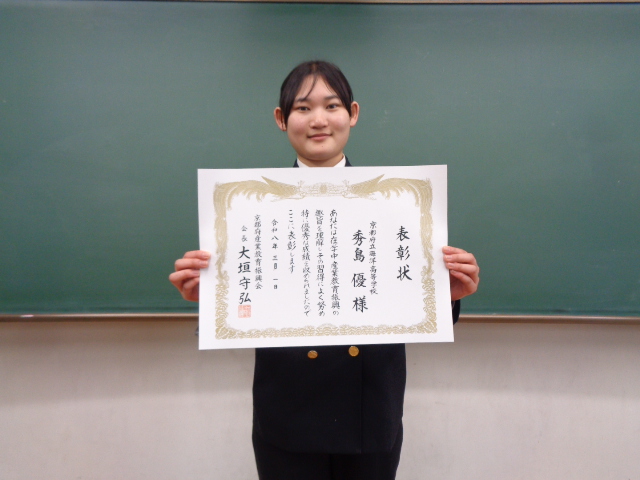 表彰状
京都府立海洋高等学校
秀島 優 様
あなたは在学中産業教育振興の
趣旨を理解しその習得によく努め
特に優秀な成績を収められましたので
ここに表彰します
令和八年三月一日
京都府産業教育振興会
会長 大垣守弘